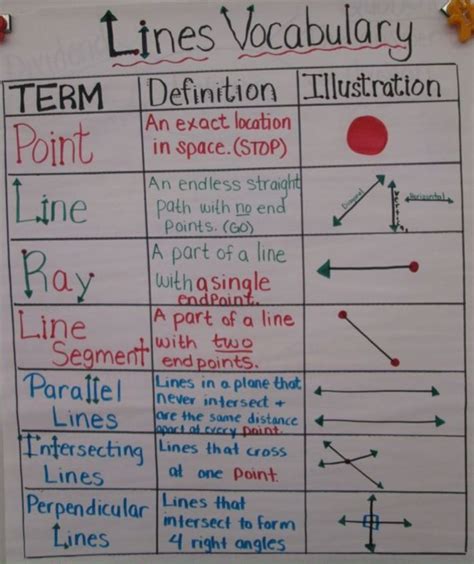 Lines Vocabulary
TERM Definition Illustration
Point
An exact location
in space. (STOP)
Line
An endless straight
path with no end
points. (GO)
Diagonal
Vertical
Horizontal
Ray
A part of a line
with a single
endpoint.
Line
Segment
A part of a line
with two
endpoints.
Parallel
Lines
Lines in a plane that
never intersect +
are the same distance
apart at every point.
Intersecting
Lines
Lines that cross
at one point.
Perpendicular
Lines
Lines that
intersect to form
4 right angles